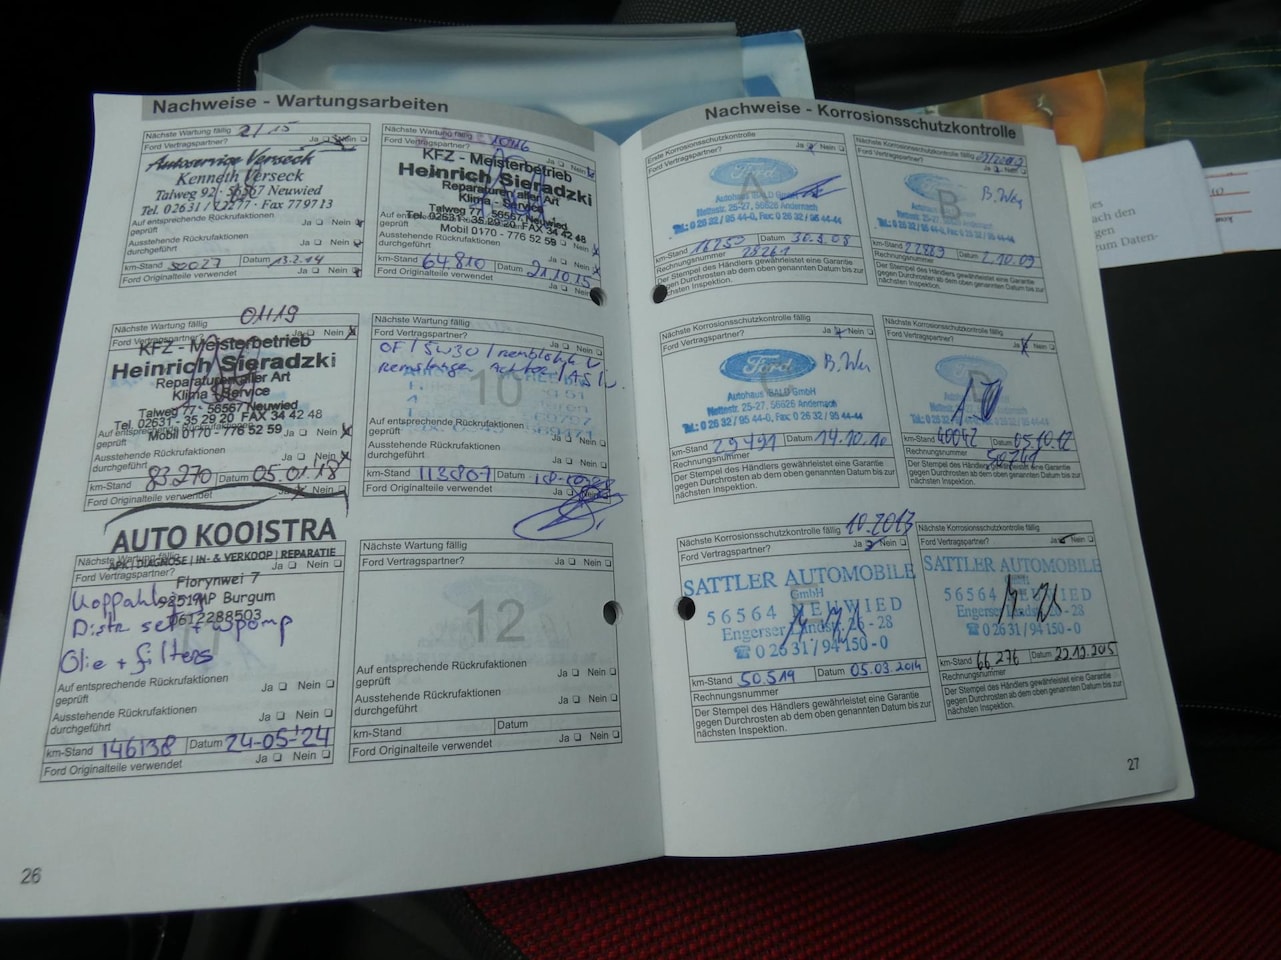 Nachweise - Wartungsarbeiten
Nächste Wartung fällig 2/15
Ford Vertragspartner? Ja Nein
Autoservice Verseck
Kenneth Verseck
Talweg 92 · 56567 Neuwied
Tel. 02631 / 77277 · Fax 779713
Auf entsprechende Rückrufaktionen
geprüft Ja Nein
Ausstehende Rückrufaktionen
durchgeführt Ja Nein
km-Stand 50027 Datum 13.2.14
Ford Originalteile verwendet Ja Nein
Nächste Wartung fällig 10/16
Ford Vertragspartner? Ja Nein
KFZ - Meisterbetrieb
Heinrich Sieradzki
Reparaturen aller Art
Klima - Service
Talweg 77 · 56567 Neuwied
Tel. 02631 - 35 29 20 FAX 34 42 48
Mobil 0170 - 776 52 59
Ausstehende Rückrufaktionen
durchgeführt Ja Nein
km-Stand 64.810 Datum 21.10.15
Ford Originalteile verwendet Ja Nein
Nächste Wartung fällig 01/19
Ford Vertragspartner? Ja Nein
KFZ - Meisterbetrieb
Heinrich Sieradzki
Reparaturen aller Art
Klima - Service
Talweg 77 · 56567 Neuwied
Tel. 02631 - 35 29 20 FAX 34 42 48
Mobil 0170 - 776 52 59
Auf entsprechende
geprüft Ja Nein
Ausstehende Rückrufaktionen
durchgeführt Ja Nein
km-Stand 83270 Datum 05.01.18
Ford Originalteile verwendet Ja Nein
Nächste Wartung fällig
Ford Vertragspartner? Ja Nein
OF / 5W30 /
10
Auf entsprechende Rückrufaktionen
geprüft
Ausstehende Rückrufaktionen
durchgeführt Ja Nein
km-Stand 113807 Datum
Ford Originalteile verwendet Ja Nein
AUTO KOOISTRA
APK | DIAGNOSE | IN- & VERKOOP | REPARATIE
Nächste Wartung fällig
Ford Vertragspartner? Ja Nein
Fiorynwei 7
9851MP Burgum
0612288503
Koppakking
Distr set + wpomp
Olie + filters
Auf entsprechende Rückrufaktionen
geprüft Ja Nein
Ausstehende Rückrufaktionen
durchgeführt Ja Nein
km-Stand 146138 Datum 24-05-'24
Ford Originalteile verwendet Ja Nein
Nächste Wartung fällig
Ford Vertragspartner? Ja Nein
12
Auf entsprechende Rückrufaktionen
geprüft Ja Nein
Ausstehende Rückrufaktionen
durchgeführt Ja Nein
km-Stand Datum
Ford Originalteile verwendet Ja Nein
26
Nachweise - Korrosionsschutzkontrolle
Erste Korrosionsschutzkontrolle
Ford Vertragspartner? Ja Nein
Ford
A
Tel.: 0 26 32 / 95 44-0, Fax: 0 26 32 / 95 44-44
km-Stand 16259 Datum 30.9.08
Rechnungsnummer
Der Stempel des Händlers gewährleistet eine Garantie
gegen Durchrosten ab dem oben genannten Datum bis zur
nächsten Inspektion.
Nächste Korrosionsschutzkontrolle fällig
Ford Vertragspartner? Ja Nein
B
km-Stand 22889 Datum 2.10.09
Rechnungsnummer
Der Stempel des Händlers gewährleistet eine Garantie
gegen Durchrosten ab dem oben genannten Datum bis zur
nächsten Inspektion.
Nächste Korrosionsschutzkontrolle fällig
Ford Vertragspartner? Ja Nein
Ford
C
Tel.: 0 26 32 / 95 44-0, Fax: 0 26 32 / 95 44-44
km-Stand 29491 Datum 14.10.10
Rechnungsnummer
Der Stempel des Händlers gewährleistet eine Garantie
gegen Durchrosten ab dem oben genannten Datum bis zur
nächsten Inspektion.
Nächste Korrosionsschutzkontrolle fällig
Ford Vertragspartner? Ja Nein
D
km-Stand 40042 Datum 05.10.12
Rechnungsnummer
Der Stempel des Händlers gewährleistet eine Garantie
gegen Durchrosten ab dem oben genannten Datum bis zur
nächsten Inspektion.
Nächste Korrosionsschutzkontrolle fällig 10.2013
Ford Vertragspartner? Ja Nein
SATTLER AUTOMOBILE
GmbH
56564 NEUWIED
Engerser Landstr. 26 - 28
☎ 0 26 31 / 94 150 - 0
km-Stand 50.519 Datum 05.03.2014
Rechnungsnummer
Der Stempel des Händlers gewährleistet eine Garantie
gegen Durchrosten ab dem oben genannten Datum bis zur
nächsten Inspektion.
Nächste Korrosionsschutzkontrolle fällig
Ford Vertragspartner? Ja Nein
SATTLER AUTOMOBILE
GmbH
56564 NEUWIED
Engerser Landstr. 26 - 28
☎ 0 26 31 / 94 150 - 0
km-Stand 66.276 Datum
Rechnungsnummer
Der Stempel des Händlers gewährleistet eine Garantie
gegen Durchrosten ab dem oben genannten Datum bis zur
nächsten Inspektion.
27
ach den
gen
zum Daten-